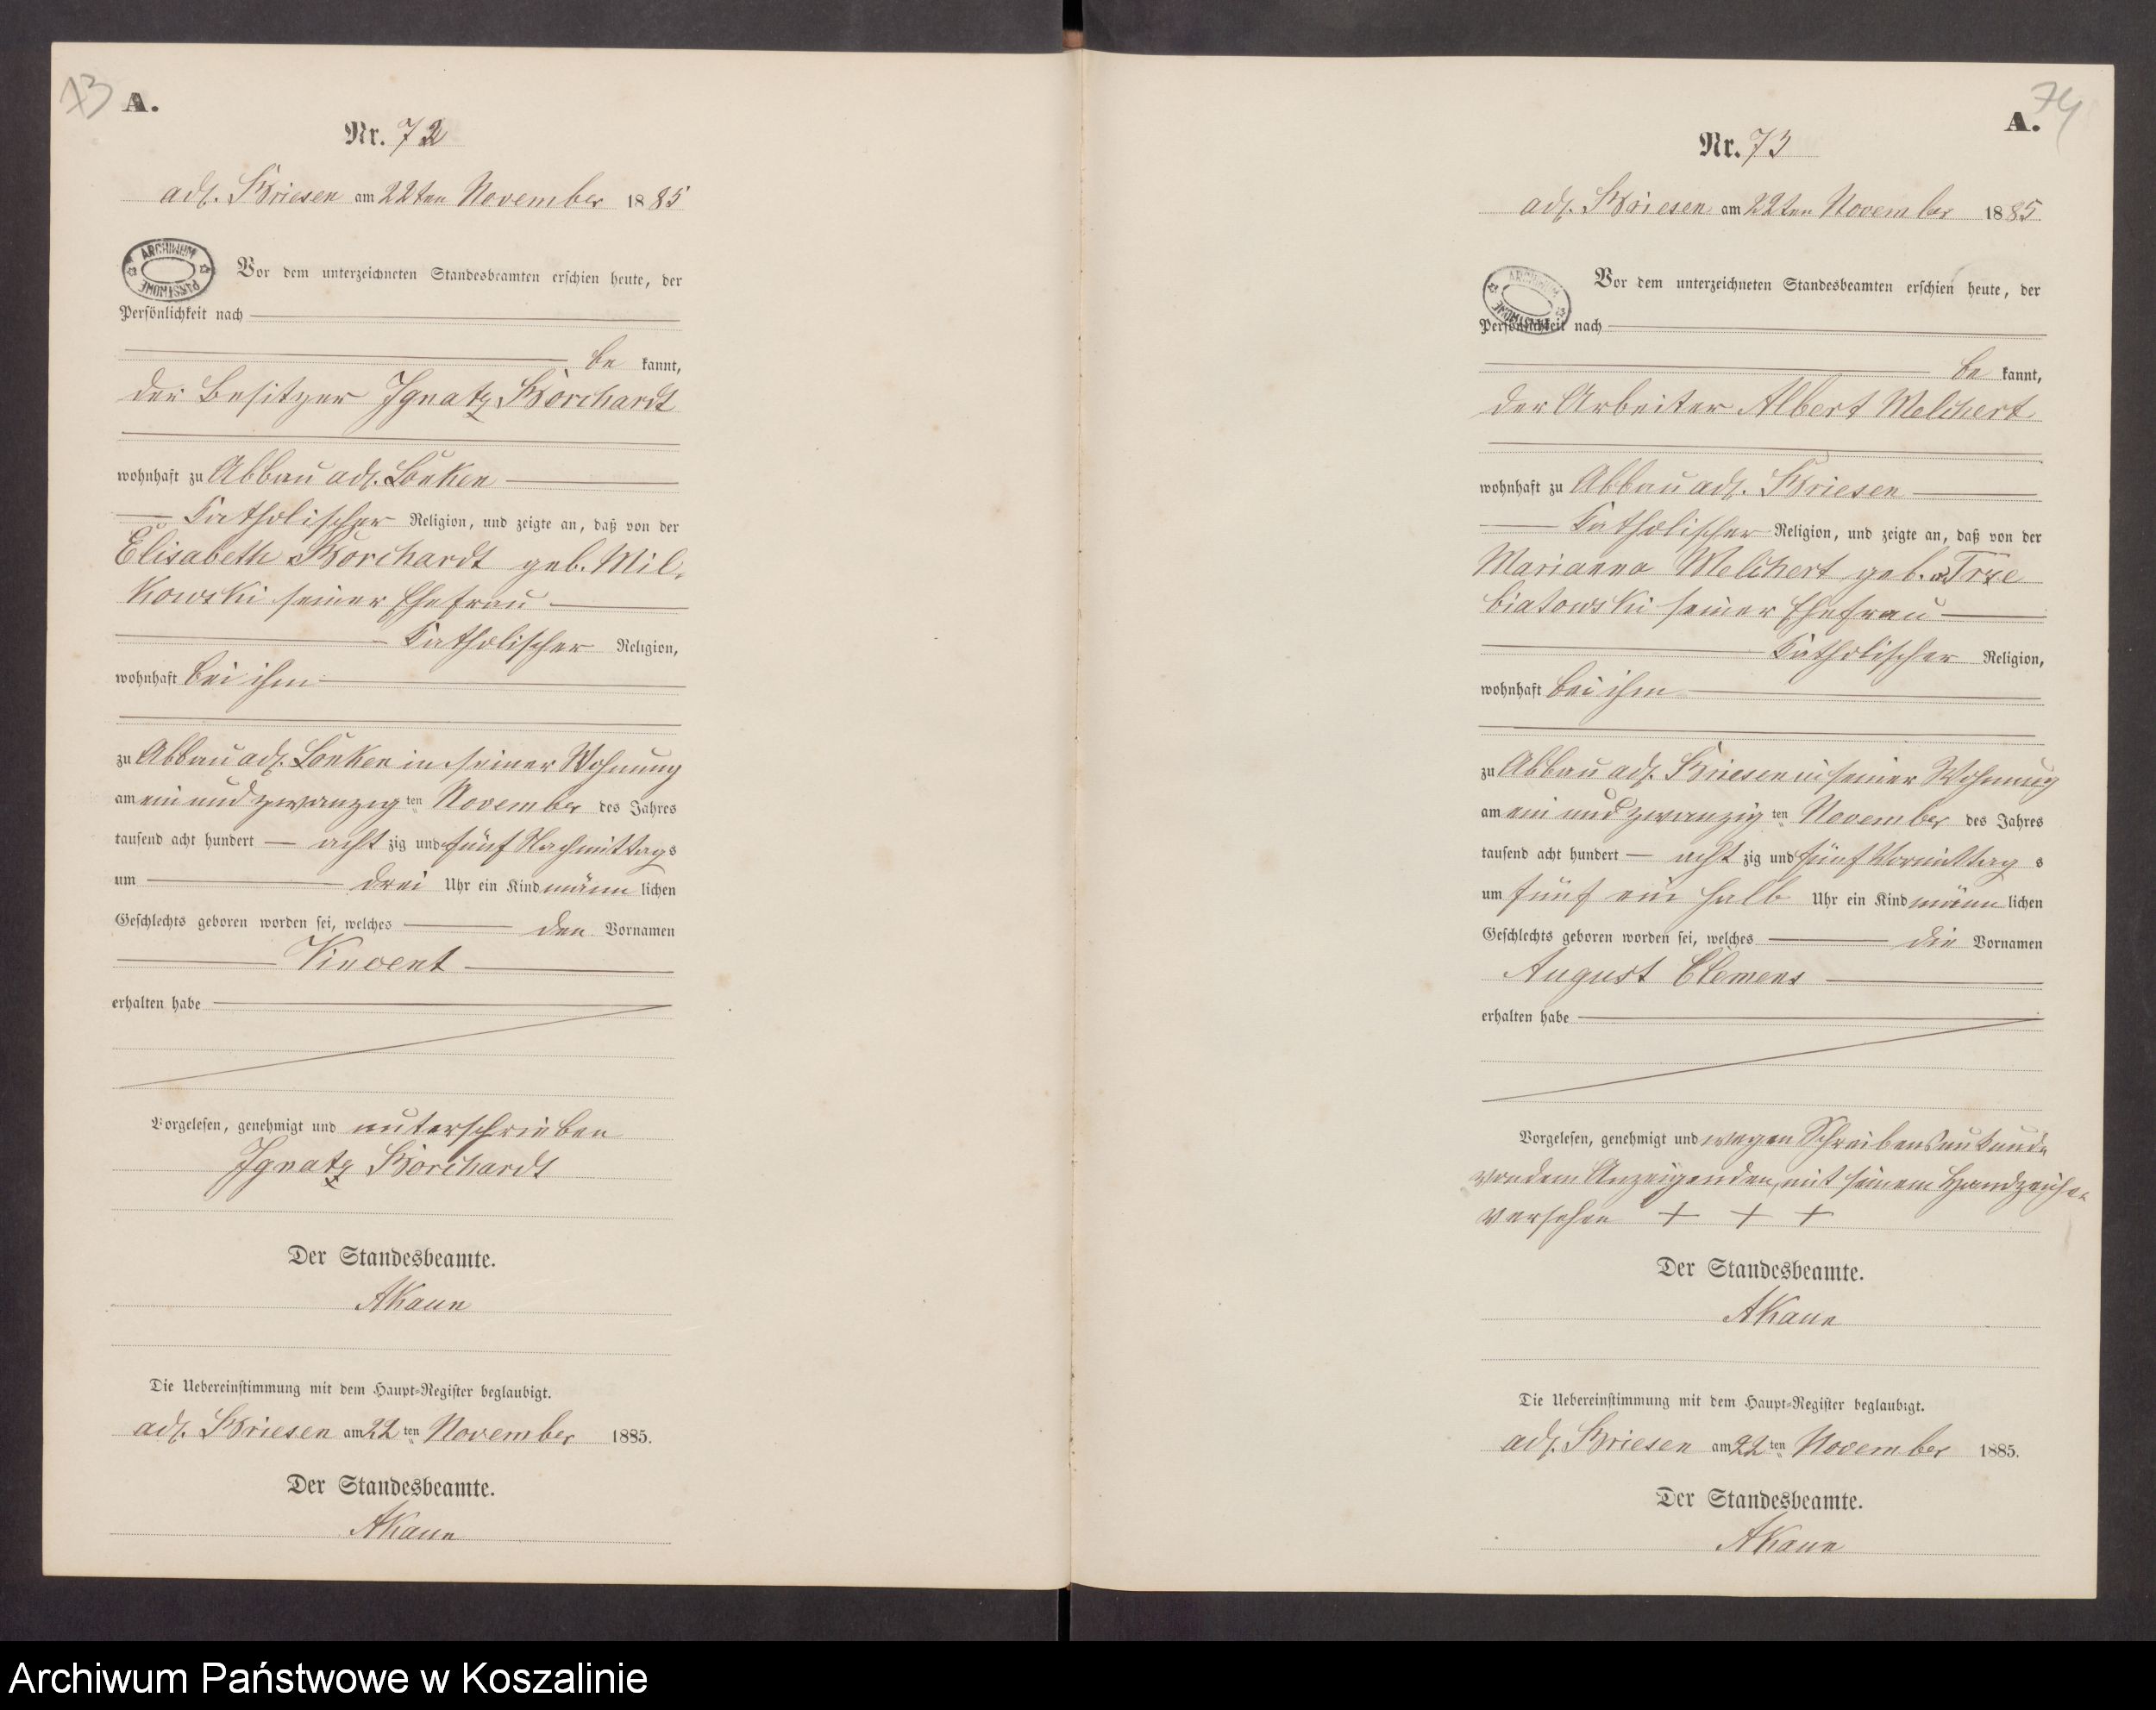 73
A.
Nr. 72
adl. Briesen am 22ten November 1885
ARCHIWUM PAŃSTWOWE
Vor dem unterzeichneten Standesbeamten erschien heute, der
Persönlichkeit nach
be kannt,
der Besitzer Ignatz Borchardt
wohnhaft zu Abbau adl. Lonken
Katholischer Religion, und zeigte an, daß von der
Elisabeth Borchardt geb. Mil-
kowski seiner Ehefrau
Katholischer Religion,
wohnhaft bei ihm
zu Abbau adl. Lonken in seiner Wohnung
am ein und zwanzig ten November des Jahres
tausend acht hundert acht zig und fünf Nachmittags
um drei Uhr ein Kind männ lichen
Geschlechts geboren worden sei, welches den Vornamen
Vincent
erhalten habe
Vorgelesen, genehmigt und unterschrieben
Ignatz Borchardt
Der Standesbeamte.
AKaun
Die Uebereinstimmung mit dem Haupt-Register beglaubigt.
adl. Briesen am 22 ten November 1885.
Der Standesbeamte.
AKaun
74
A.
Nr. 73
adl. Briesen am 22ten November 1885.
ARCHIWUM PAŃSTWOWE
Vor dem unterzeichneten Standesbeamten erschien heute, der
Persönlichkeit nach
be kannt,
der Arbeiter Albert Melchert
wohnhaft zu Abbau adl. Briesen
Katholischer Religion, und zeigte an, daß von der
Marianna Melchert geb. Trze
biatowski seiner Ehefrau
Katholischer Religion,
wohnhaft bei ihm
zu Abbau adl. Briesen in seiner Wohnung
am ein und zwanzig ten November des Jahres
tausend acht hundert acht zig und fünf Vormittag s
um fünf ein halb Uhr ein Kind männ lichen
Geschlechts geboren worden sei, welches die Vornamen
August Clemens
erhalten habe
Vorgelesen, genehmigt und wegen Schreibensunkunde
von dem Anzeigenden mit seinem Handzeichen
versehen + + +
Der Standesbeamte.
AKaun
Die Uebereinstimmung mit dem Haupt-Register beglaubigt.
adl. Briesen am 22 ten November 1885.
Der Standesbeamte.
AKaun
Archiwum Państwowe w Koszalinie